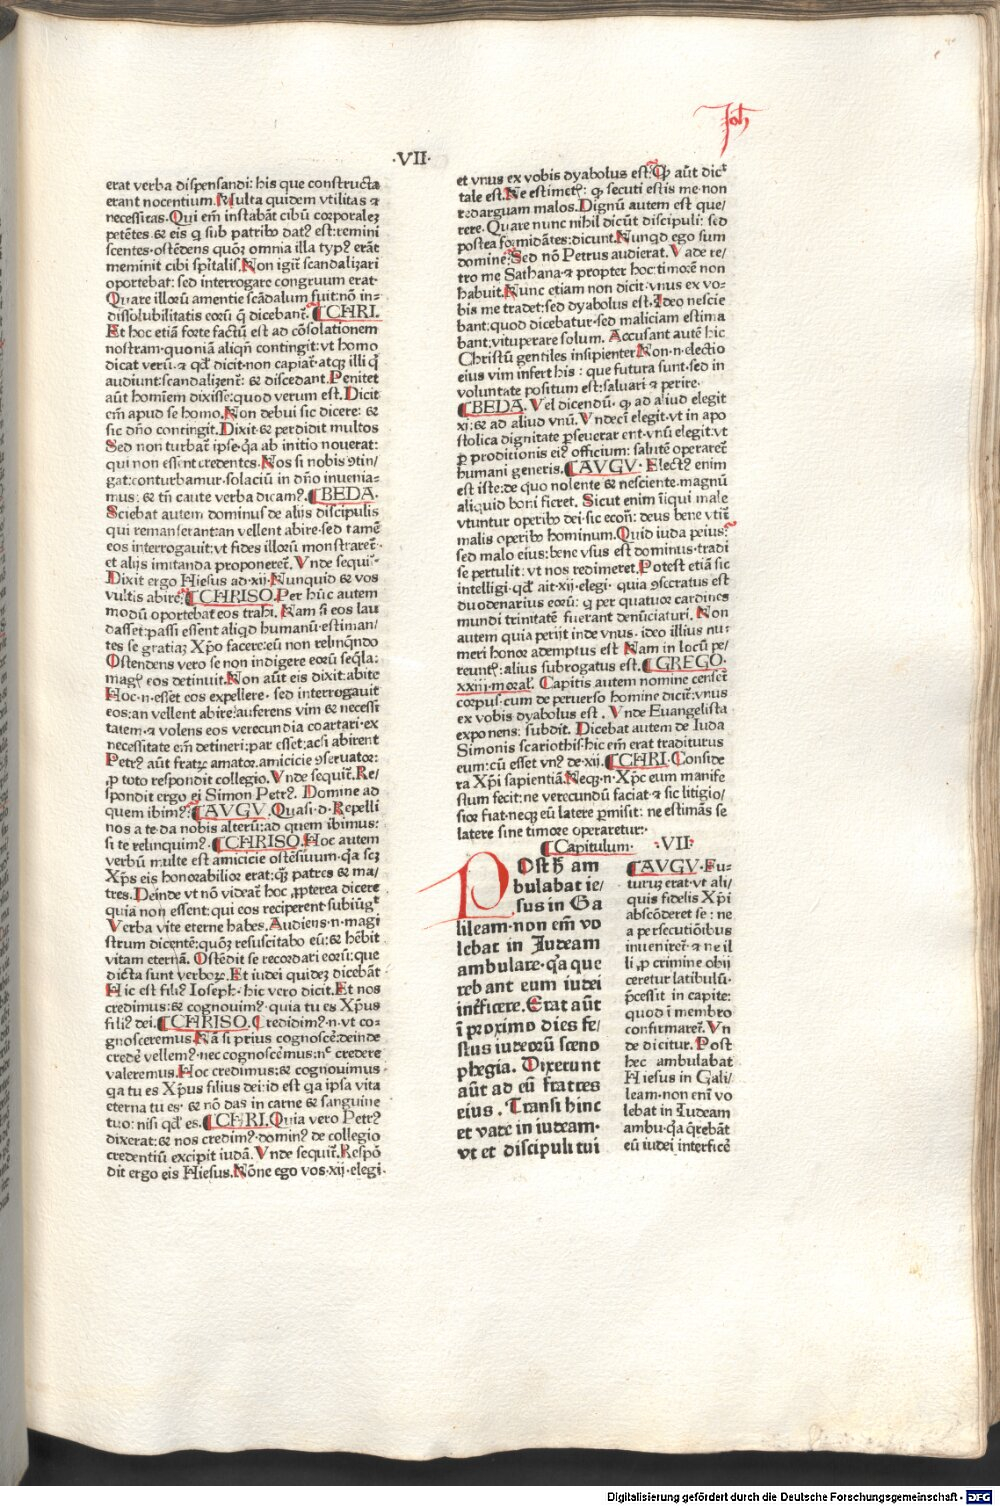 Joh
·VII·
erat verba dispensandi: his que constructa
erant nocentium. Multa quidem vtilitas ⁊
necessitas. Qui em̄ instabāt cibū corporalez
petētes ⁊ eis q̄ sub patribꝰ datꝰ est: remini
scentes· ostēdens quoꝝ omnia illa typꝰ erāt
meminit cibi spīritalis. Non igit̄ scandalizari
oportebat: sed interrogare congruum erat·
Quare illoꝝ amentie scādalum fuit: nō in-
dissolubilitatis eoꝝ q̄ dicebant̄. CHRI.
Et hoc etiā forte factū est ad cōsolationem
nostram· quoniā aliqn̄ contingit: vt homo
dicat verū· ⁊ qd̄ dicit· non capiat̄· atqꝫ illi q̄
audiunt: scandalizent̄: ⁊ discedant. Penitet
aūt hominem dixisse: quod verum est. Dicit
em̄ apud se homo. Non debui sic dicere: ⁊
sic dn̄o contingit. Dixit ⁊ perdidit multos
Sed non turbat̄ ipse· q̄a ab initio nouerat:
qui non essent credentes. Nos si nobis ꝯtin/
gat: conturbamur· solaciū in dn̄o inuenia-
mus: ⁊ tn̄ caute verba dicamꝰ. BEDA.
Sciebat autem dominus de alijs discipulis
qui remanserant: an vellent abire· sed tamē
eos interrogauit: vt fides illoꝝ monstraret̄·
et alijs imitanda proponeret̄. Vnde sequit̄·
Dixit ergo Hiesus ad· xij· Nunquid ⁊ vos
vultis abire? CHRISO. Per hūc autem
modū oportebat eos trahi. Nam si eos lau
dasset: passi essent aliqd humanū· estiman/
tes se gratiaꝫ Xp̄o facere: eū non relinqn̄do
Ostendens vero se non indigere eoꝝ seq̄la:
magꝭ eos detinuit. Non aūt eis dixit: abite
Hoc· n· esset eos expellere· sed interrogauit
eos: an vellent abire: auferens vim ⁊ necessi
tatem· ⁊ volens eos verecundia coartari· ex
necessitate em̄ detineri: par esset: acsi abirent
Petrꝰ aūt fratꝝ amator· amicicie ꝯseruator:
ꝓ toto respondit collegio. Vnde sequit̄. Re/
spondit ergo ei Simon Petrꝰ. Domine ad
quem ibimꝰ? AVGV. Quasi· d· Repelli
nos a te· da nobis alterū: ad quem ibimus:
si te relinquimꝰ. CHRISO. Hoc autem
verbū multe est amicicie ostēsiuum· q̄a scꝫ
Xp̄s eis honorabilior erat: qꝫ patres ⁊ ma/
tres. Deinde vt nō videat̄ hoc ꝓpterea dicere
quia non essent: qui eos reciperent· subiūgit
Verba vite eterne habes. Audiens· n· magi
strum dicentē: quoꝫ resuscitabo eū: ⁊ hēbit
vitam eternā. Ostēdit se recordari eoꝝ: que
dicta sunt verboꝝ. Et iudei quidez dicebāt
Hic est filiꝰ Ioseph· hic vero dicit. Et nos
credimus: ⁊ cognouimꝰ· quia tu es Xp̄us
filiꝰ dei. CHRISO. Credidimꝰ· n· vt co-
gnosceremus. Nā si prius cognoscē: deinde
credē vellemꝰ· nec cognoscēmus: nᶜ credere
valeremus. Hoc credimus: ⁊ cognouimus
qa tu es Xp̄us filius dei: id est qa ipsa vita
eterna tu es· ⁊ nō das in carne ⁊ sanguine
tuo: nisi qd̄ es. CHRI. Quia vero Petrꝰ
dixerat: ⁊ nos credimꝰ· dominꝰ de collegio
credentiū excipit iudā. Vnde sequit̄. Respō
dit ergo eis Hiesus. Nōne ego vos· xij· elegi·
et vnus ex vobis dyabolus est? Qꝫ aūt dicᵗ
tale est. Ne estimetꝭ: qꝫ secuti estis me· non
redarguam malos. Dignū autem est que/
rere. Quare nunc nihil dicūt discipuli: sed
postea formidātes: dicunt. Nunqd ego sum
domine? Sed nō Petrus audierat. Vade re/
tro me Sathana· ⁊ propter hoc: timorē non
habuit. Nunc etiam non dicit· vnus ex vo-
bis me tradet: sed dyabolus est. Ideo nescie
bant: quod dicebatur· sed maliciam estima
bant: vituperare solum. Accusant autē hic
Christū gentiles insipienter. Non· n· electio
eius vim infert his: que futura sunt· sed in
voluntate positum est: saluari ⁊ perire·
BEDA. Vel dicendū· qꝫ ad aliud elegit
xi: ⁊ ad aliud vnū. Vndeci elegit· vt in apo
stolica dignitate ꝑseuerarent· vnū elegit· vt
ꝑ proditionis eiꝰ officium: salutē operaret̄
humani generis. AVGV. Electꝰ enim
est iste: de quo nolente ⁊ nesciente· magnū
aliquid boni fieret. Sicut enim īiqui male
vtuntur operibꝰ dei· sic econ̄: deus bene vtit̄
malis operibꝰ hominum. Quid iuda peius?
sed malo eius: bene vsus est dominus· tradi
se pertulit: vt nos redimeret. Potest etiā sic
intelligi· qd̄ ait· xij· elegi· quia ꝯsecratus est
duodenarius eoꝝ: q̄ per quatuor cardines
mundi trinitatē fuerant denūciaturi. Non
autem quia perijt inde vnus· ideo illius nu-
meri honor ademptus est Nam in locū pe/
reuntꝭ: alius subrogatus est. GREGO·
xxiij· moral̄. Capitis autem nomine censet̄
corpus· cum de peruerso homine dicit̄: vnus
ex vobis dyabolus est. Vnde Euangelista
exponens: subdit. Dicebat autem de Iuda
Simonis scariothis: hic em̄ erat traditurus
eum: cū esset vnꝰ de· xij. CHRI· Conside
ra Xp̄i sapientiā. Neqꝫ· n· Xp̄c eum manife
stum fecit: ne verecundū faciat· ⁊ sic litigio/
sior fiat· neqꝫ eū latere ꝑmisit: ne estimās se
latere sine timore operaretur:·
Capitulum· ·VII·
POst h̄ am
bulabat ie/
sus in Ga
lileam· non em̄ vo
lebat in Iudeam
ambulare· q̄a que
rebant eum iudei
interficere. Erat aūt
ī proximo dies fe/
stus iudeoꝝ sceno
phegia. Dixerunt
aūt ad eū fratres
eius. Transi hinc
et vade in iudeam·
vt et discipuli tui
AVGV· Fu-
turuꝫ erat· vt ali/
quis fidelis Xp̄i
absconderet se: ne
a persecutiōibus
inueniret̄· ⁊ ne il
li ꝓ crimine obij
ceretur latibulū·
p̄cessit in capite:
quod ī membro
confirmaret̄. Vn
de dicitur. Post
hec ambulabat
Hiesus in Gali/
leam· non eni vo
lebat in Iudeam
ambu· q̄a q̄rebāt
eū iudei interficē
Digitalisierung gefördert durch die Deutsche Forschungsgemeinschaft - DFG